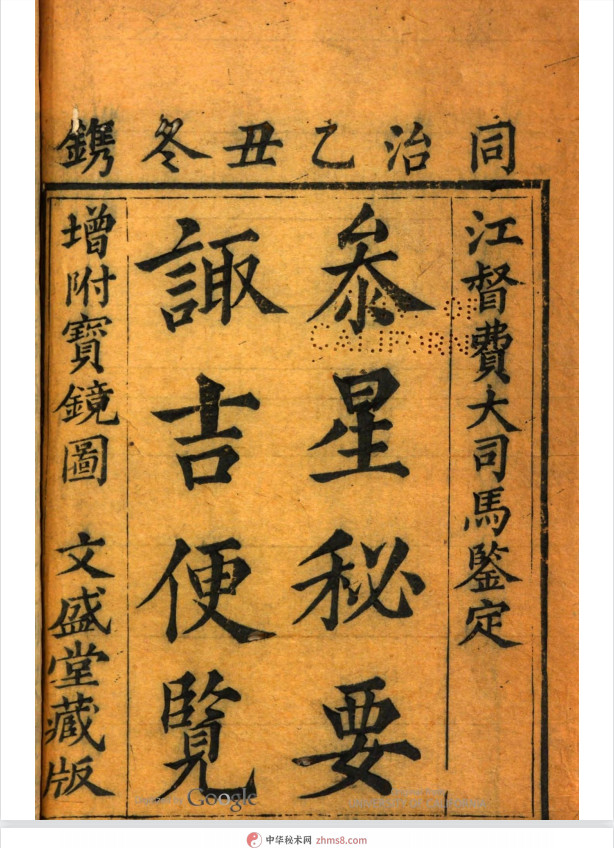 同治乙丑冬鐫
江督費大司馬鑒定
叅星秘要
諏吉便覽
增附寶鏡圖 文盛堂藏版
CALIFORN
Google
中华秘术网 zhms8.com